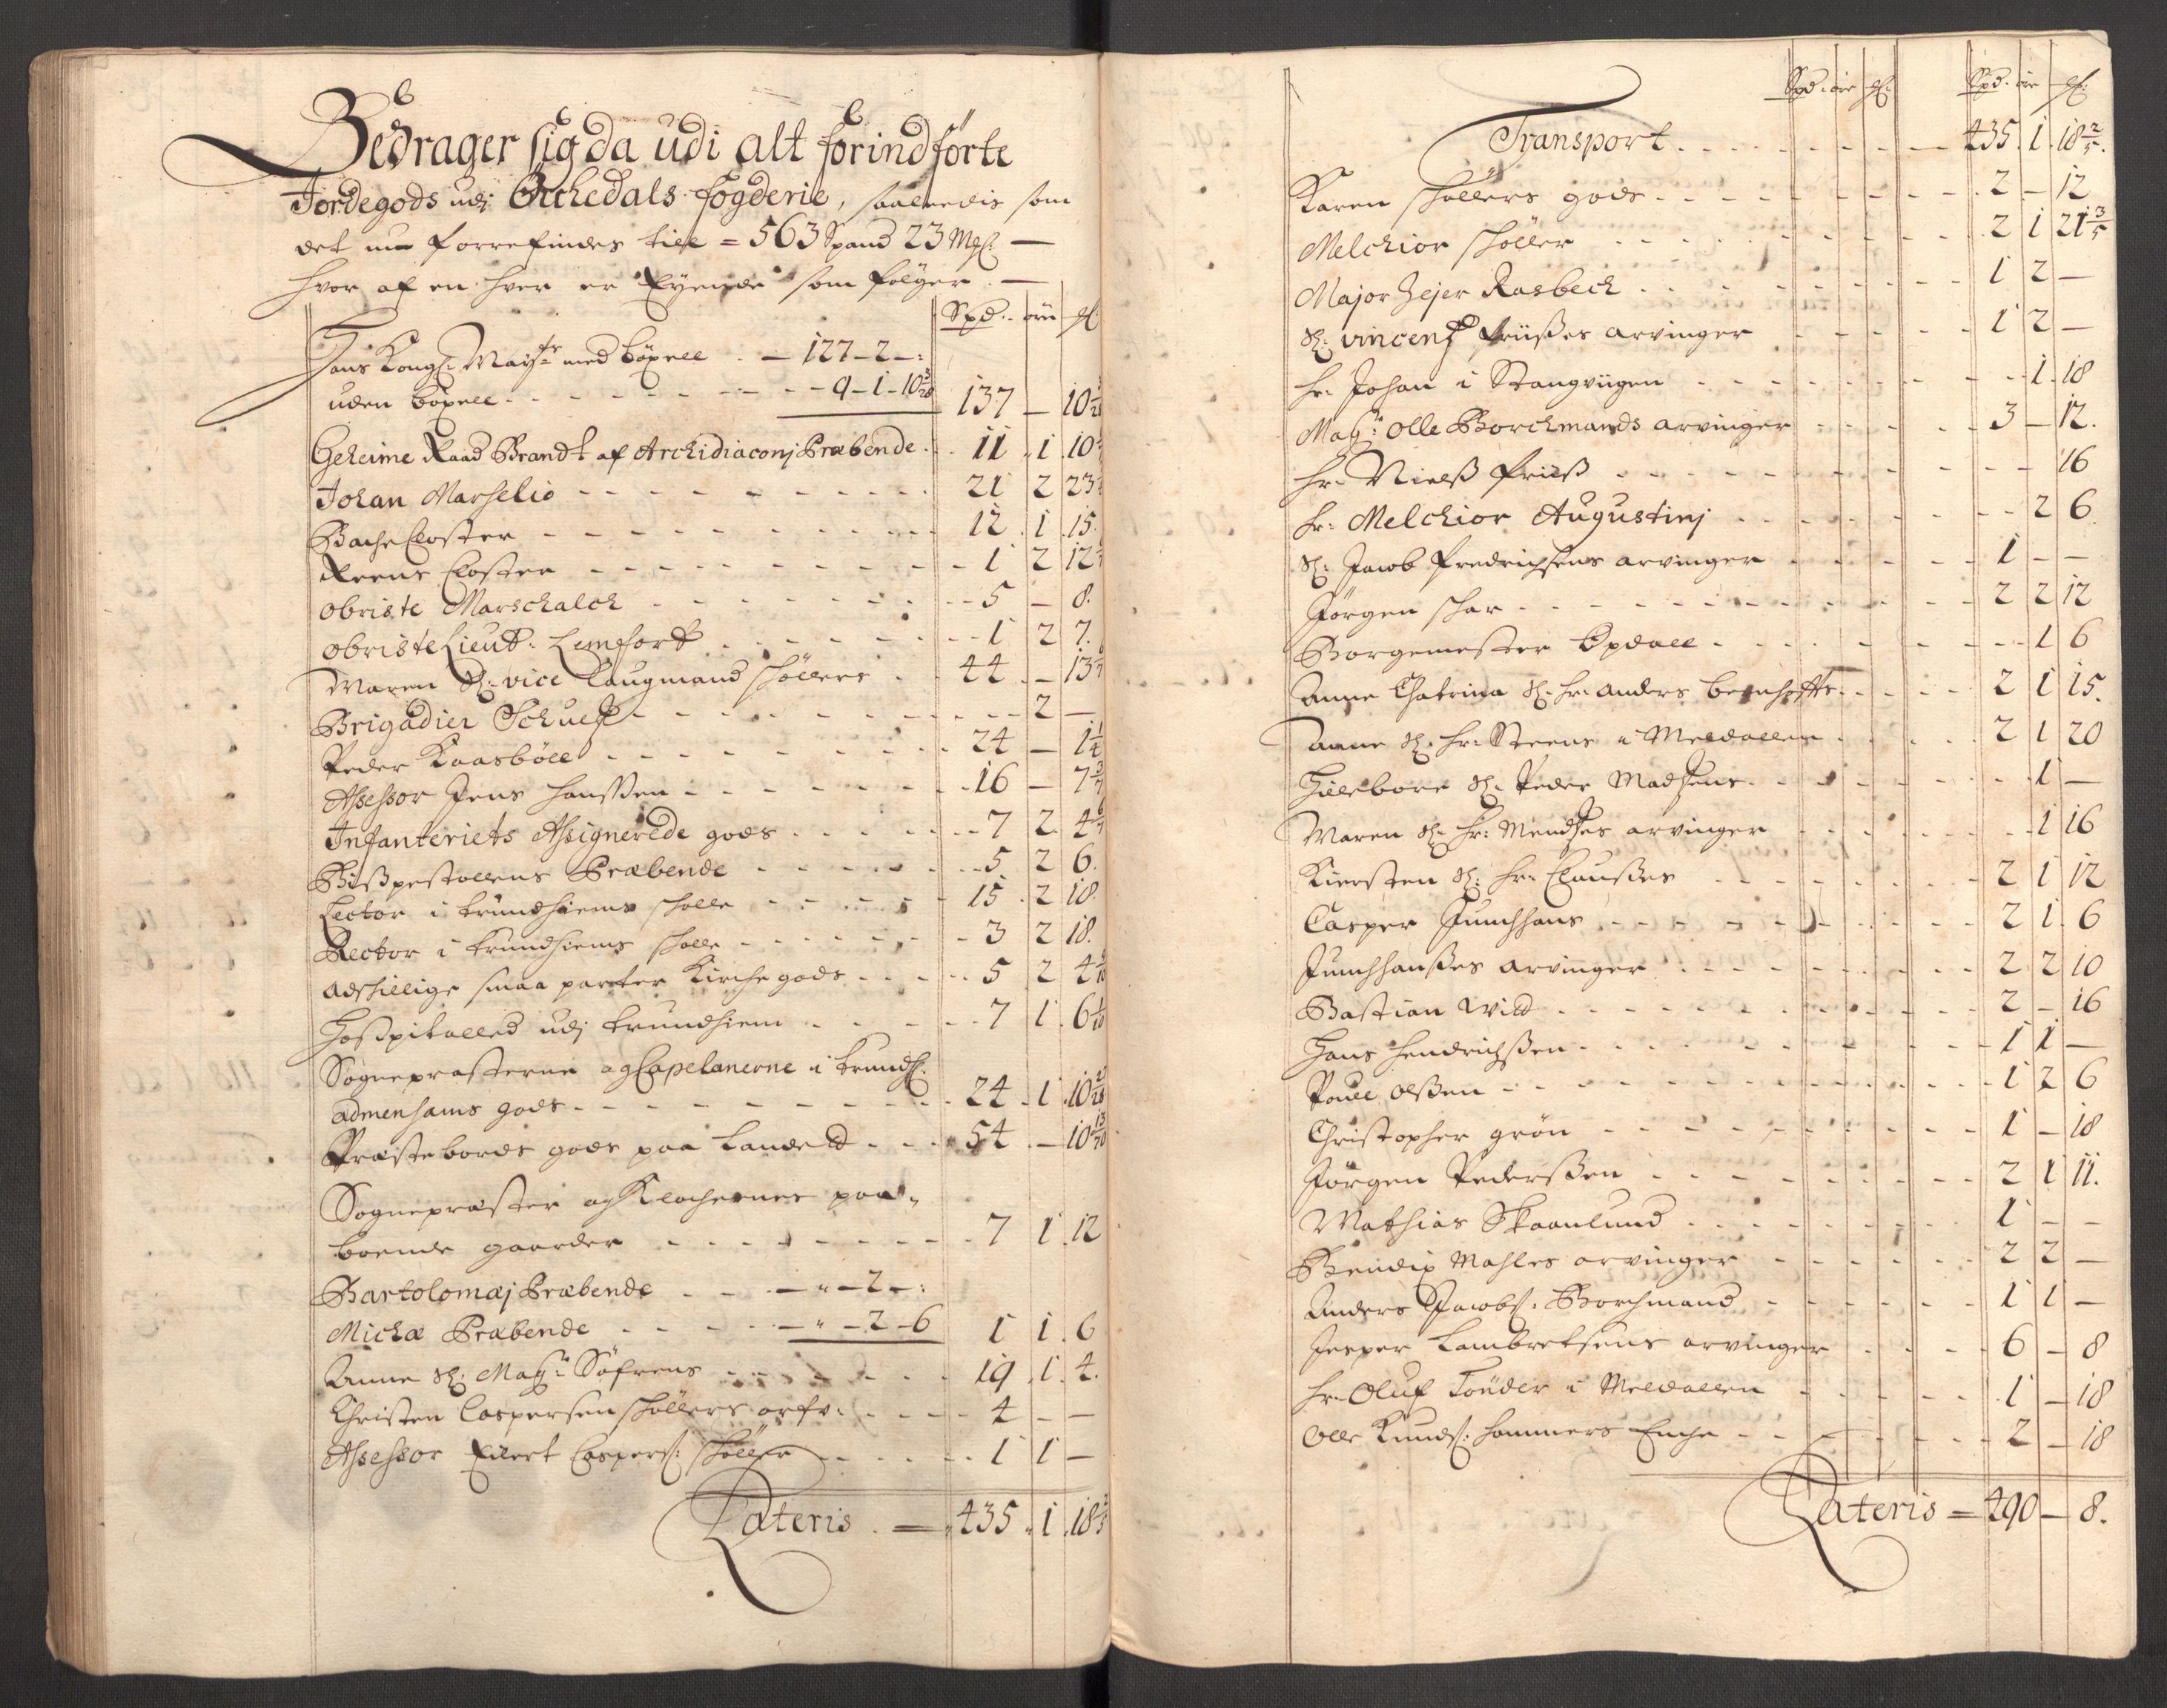 Bedrager sig da udi alt forindførte
Jordegods udj Örchedals fogderie, saaledis som
det nu forrefindes till = 563 Spand 23 Mk: —
hvor af en hver er Eyende som følger. —
Spd. øre
Hans Kongl: Maÿts med böxell . — 127 – 2 – :
uden böxell . . . . — 9 – 1 – 10 3/28 137 — 10
Geheime Raad Brandt af Archidiaconj Præbende . 11 1 10
Johan Marselio 21 2 23
Bache Closter 12 1 15
Reens Closter 1 2 12
obriste Marschalch 5 — 8.
obriste Lieut: Lemfort 1 2 7.
Maren Sl: vice Laugmand schöllers 44 — 13
Brigadier Schultz 2 —
Peder Kaasböll 24 — 1 1/4
Assessor Jens Hanssen 16 — 7
Infanteriets Assignerede gods 7 2 4
Bißpestollens Præbende 5 2 6.
Lector i trundhiems scholle 15 2 18.
Rector i trundhiems scholle 3 2 18.
adskillige smaa parter Kirche gods 5 2 4
Hospitalled udj trundhiem 7 1 6
Sognepræsterne og Capelanerne i trundh:
admensams gods 24 1 10
Præstebords gods paa Landed 54 — 10
Sognepræster og Klochernes paa-
boende gaarder 7 1 12
Bartolomæj Præbende — " – 2 – :
Michæ Præbende — " – 2 – 6 1 1 6
Anne Sl: Magr Söfrens 19 1 4.
Christen Caspersen schöllers arfv: 4 — —
Assessor Eilert Caspers: schöller 1 1 —
Lateris . = 435 1 18
Spd. øre Spd. øre
Transport 435 1 18 2/5.
Karen schöllers gods 2 — 12
Melchior schöller 2 1 21 3/5
Major Zejer Rosbech 1 2 —
Sl: vincentz friißes arvinger 1 2 —
hr. Johan i Stangviigen 1 18
Magr: olle Borchmands arvinger 3 — 12.
hr. Nielß friiß 16
hr: Melchior Augustinj 2 6
Sl: Jacob fredrichsens arvinger 1 — —
Jörgen schar 2 2 12
Borgemester Opdall 1 6
Anne Chatrina Sl. hr. anders bernhoffts 2 1 15.
anne Sl. hr. Steens i Meldallen 2 1 20
Hilleborr Sl. Peder Madzens 1 —
Maren Sl. hr: Mendzes arvinger 1 16
Kiersten Sl: hr. Claußes 2 1 12
Casper Junchhans 2 1 6
Junchhanßes arvinger 2 2 10
Bastian Wild 2 — 16
Hans Hendrichßen 1 1 —
Poull olßen 1 2 6
Christopher grön 1 — 18
Jörgen Pederßen 2 1 11.
Mathias Skaanlund 1 — —
Bendix Mahles arvinger 2 2 —
Anders Jacobs: Borchmand 1 1 —
Jesper Lambretsens arvinger 6 — 8
hr. Oluf Tönder i Meldallen 1 — 18
Olle Knuds: hammers Enche 2 — 18
Lateris = 490 — 8.